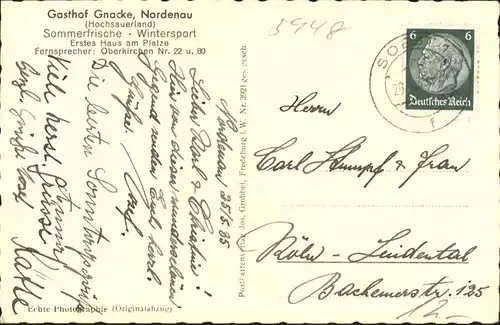 Gasthof Gnacke, Nordenau
(Hochsauerland)
Sommerfrische - Wintersport
Erstes Haus am Platze
Fernsprecher: Oberkirchen Nr. 22 u. 80
5948
Nordenau 25/5 35
Lieber Karl & Christine!
Von dieser wunderschönen
Gegend senden Euch herzl.
Grüsse
Josef
Die besten Sonntagsgrüße
Viele herzl. Grüsse
Käthe
Herzl. Grüße
Echte Photographie (Originalabzug)
Postkartenverlag Jos. Grobbel, Fredeburg i. W. Nr. 3921 ges. gesch.
6 6
Deutsches Reich
Herrn
Carl Stumpf & Frau
Köln - Lindental
Bachemerstr. 125
12.-